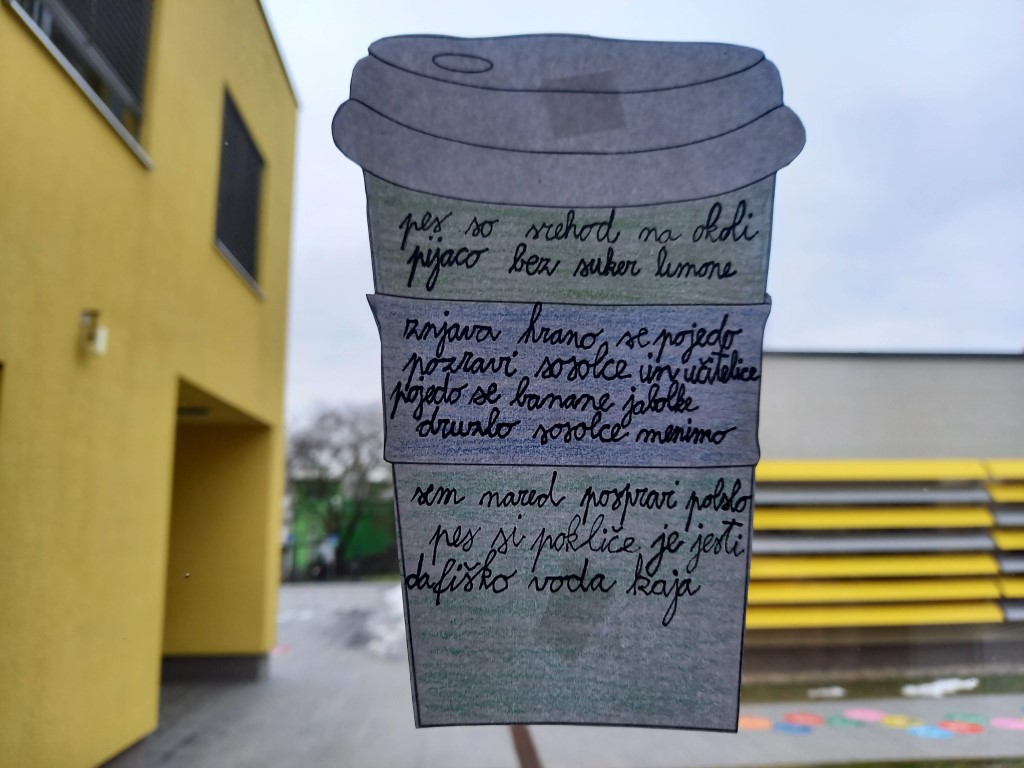 pes so srehod na okoli
pijaco bez suker limone
znjava hrano, se pojedo
pozravi sosolce in učitelice
pojedo se banane jabolke
druzabo sosolce menimo
sem nared pospravi polslo
pes si pokliče, je jesti
da fiško voda kaja